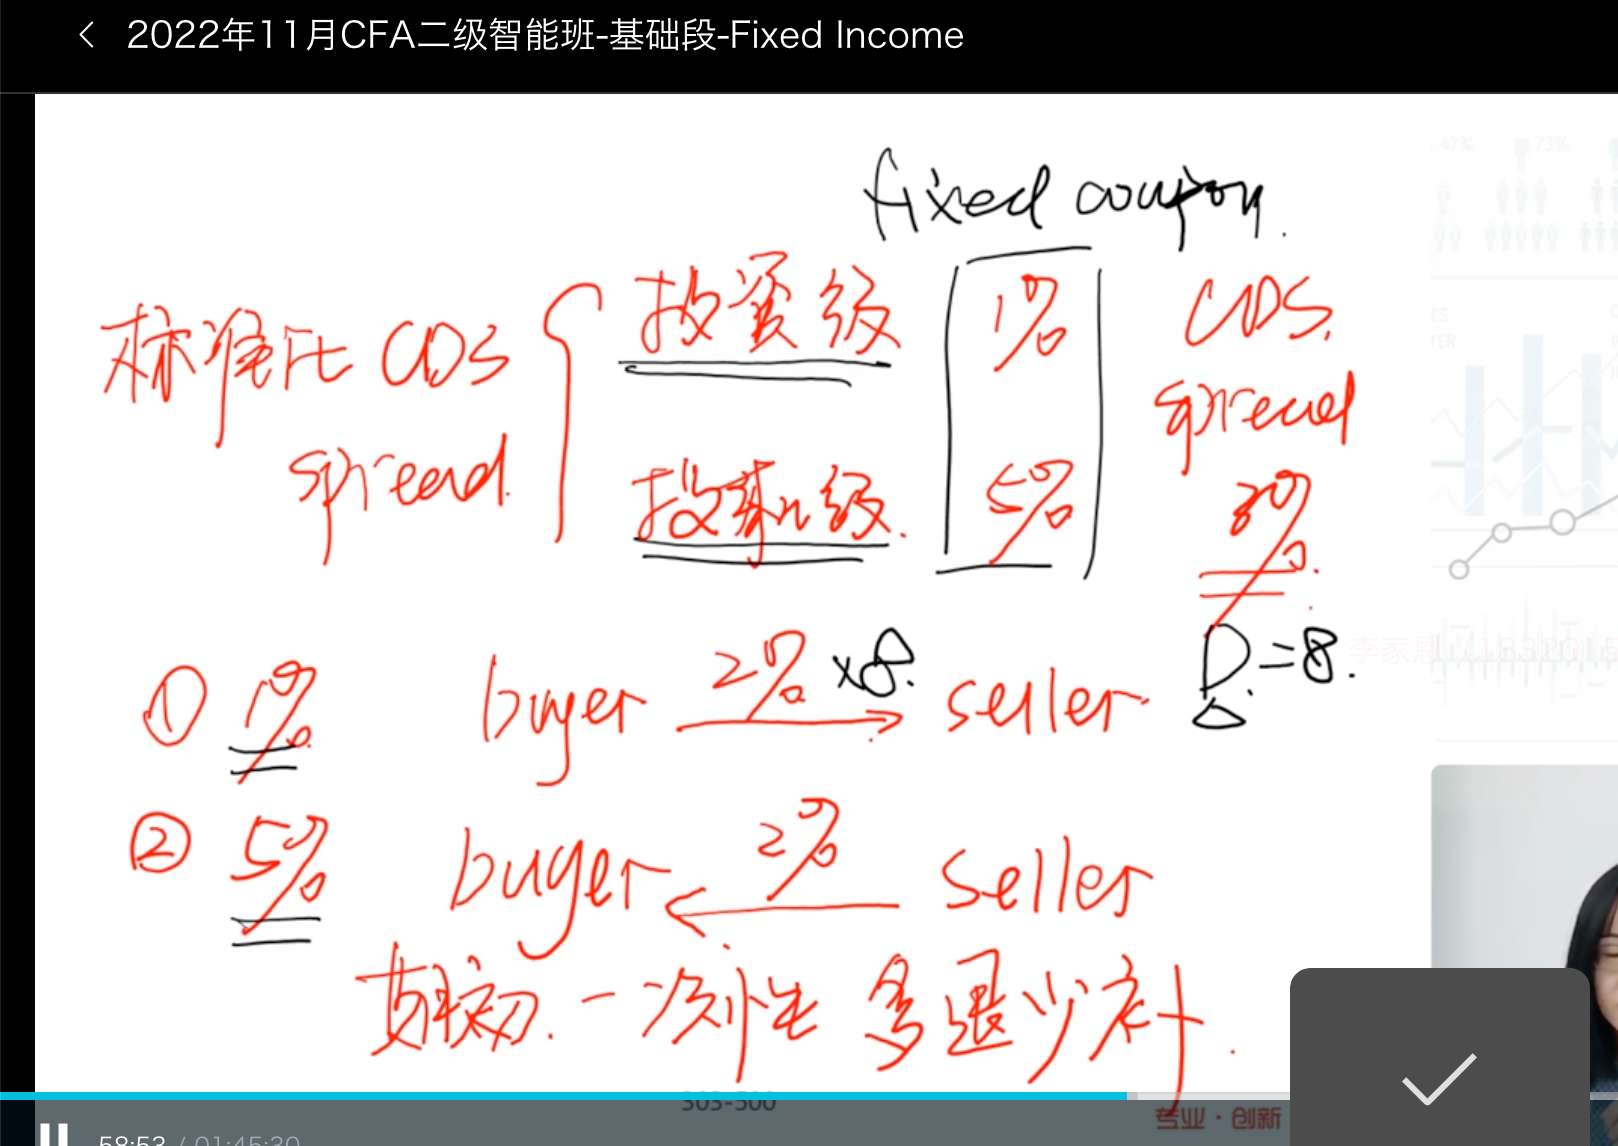 2022年11月CFA二级智能班-基础段-Fixed Income
fixed coupon.
标准化 CDS spread.
投资级 1%
投机级. 5%
CDS. spread 3%.
① 1% buyer 2% ×8. seller D=8.
② 5% buyer 2% seller
期初. 一次性 多退少补.
303-500
专业·创新
58:53 / 01:45:30